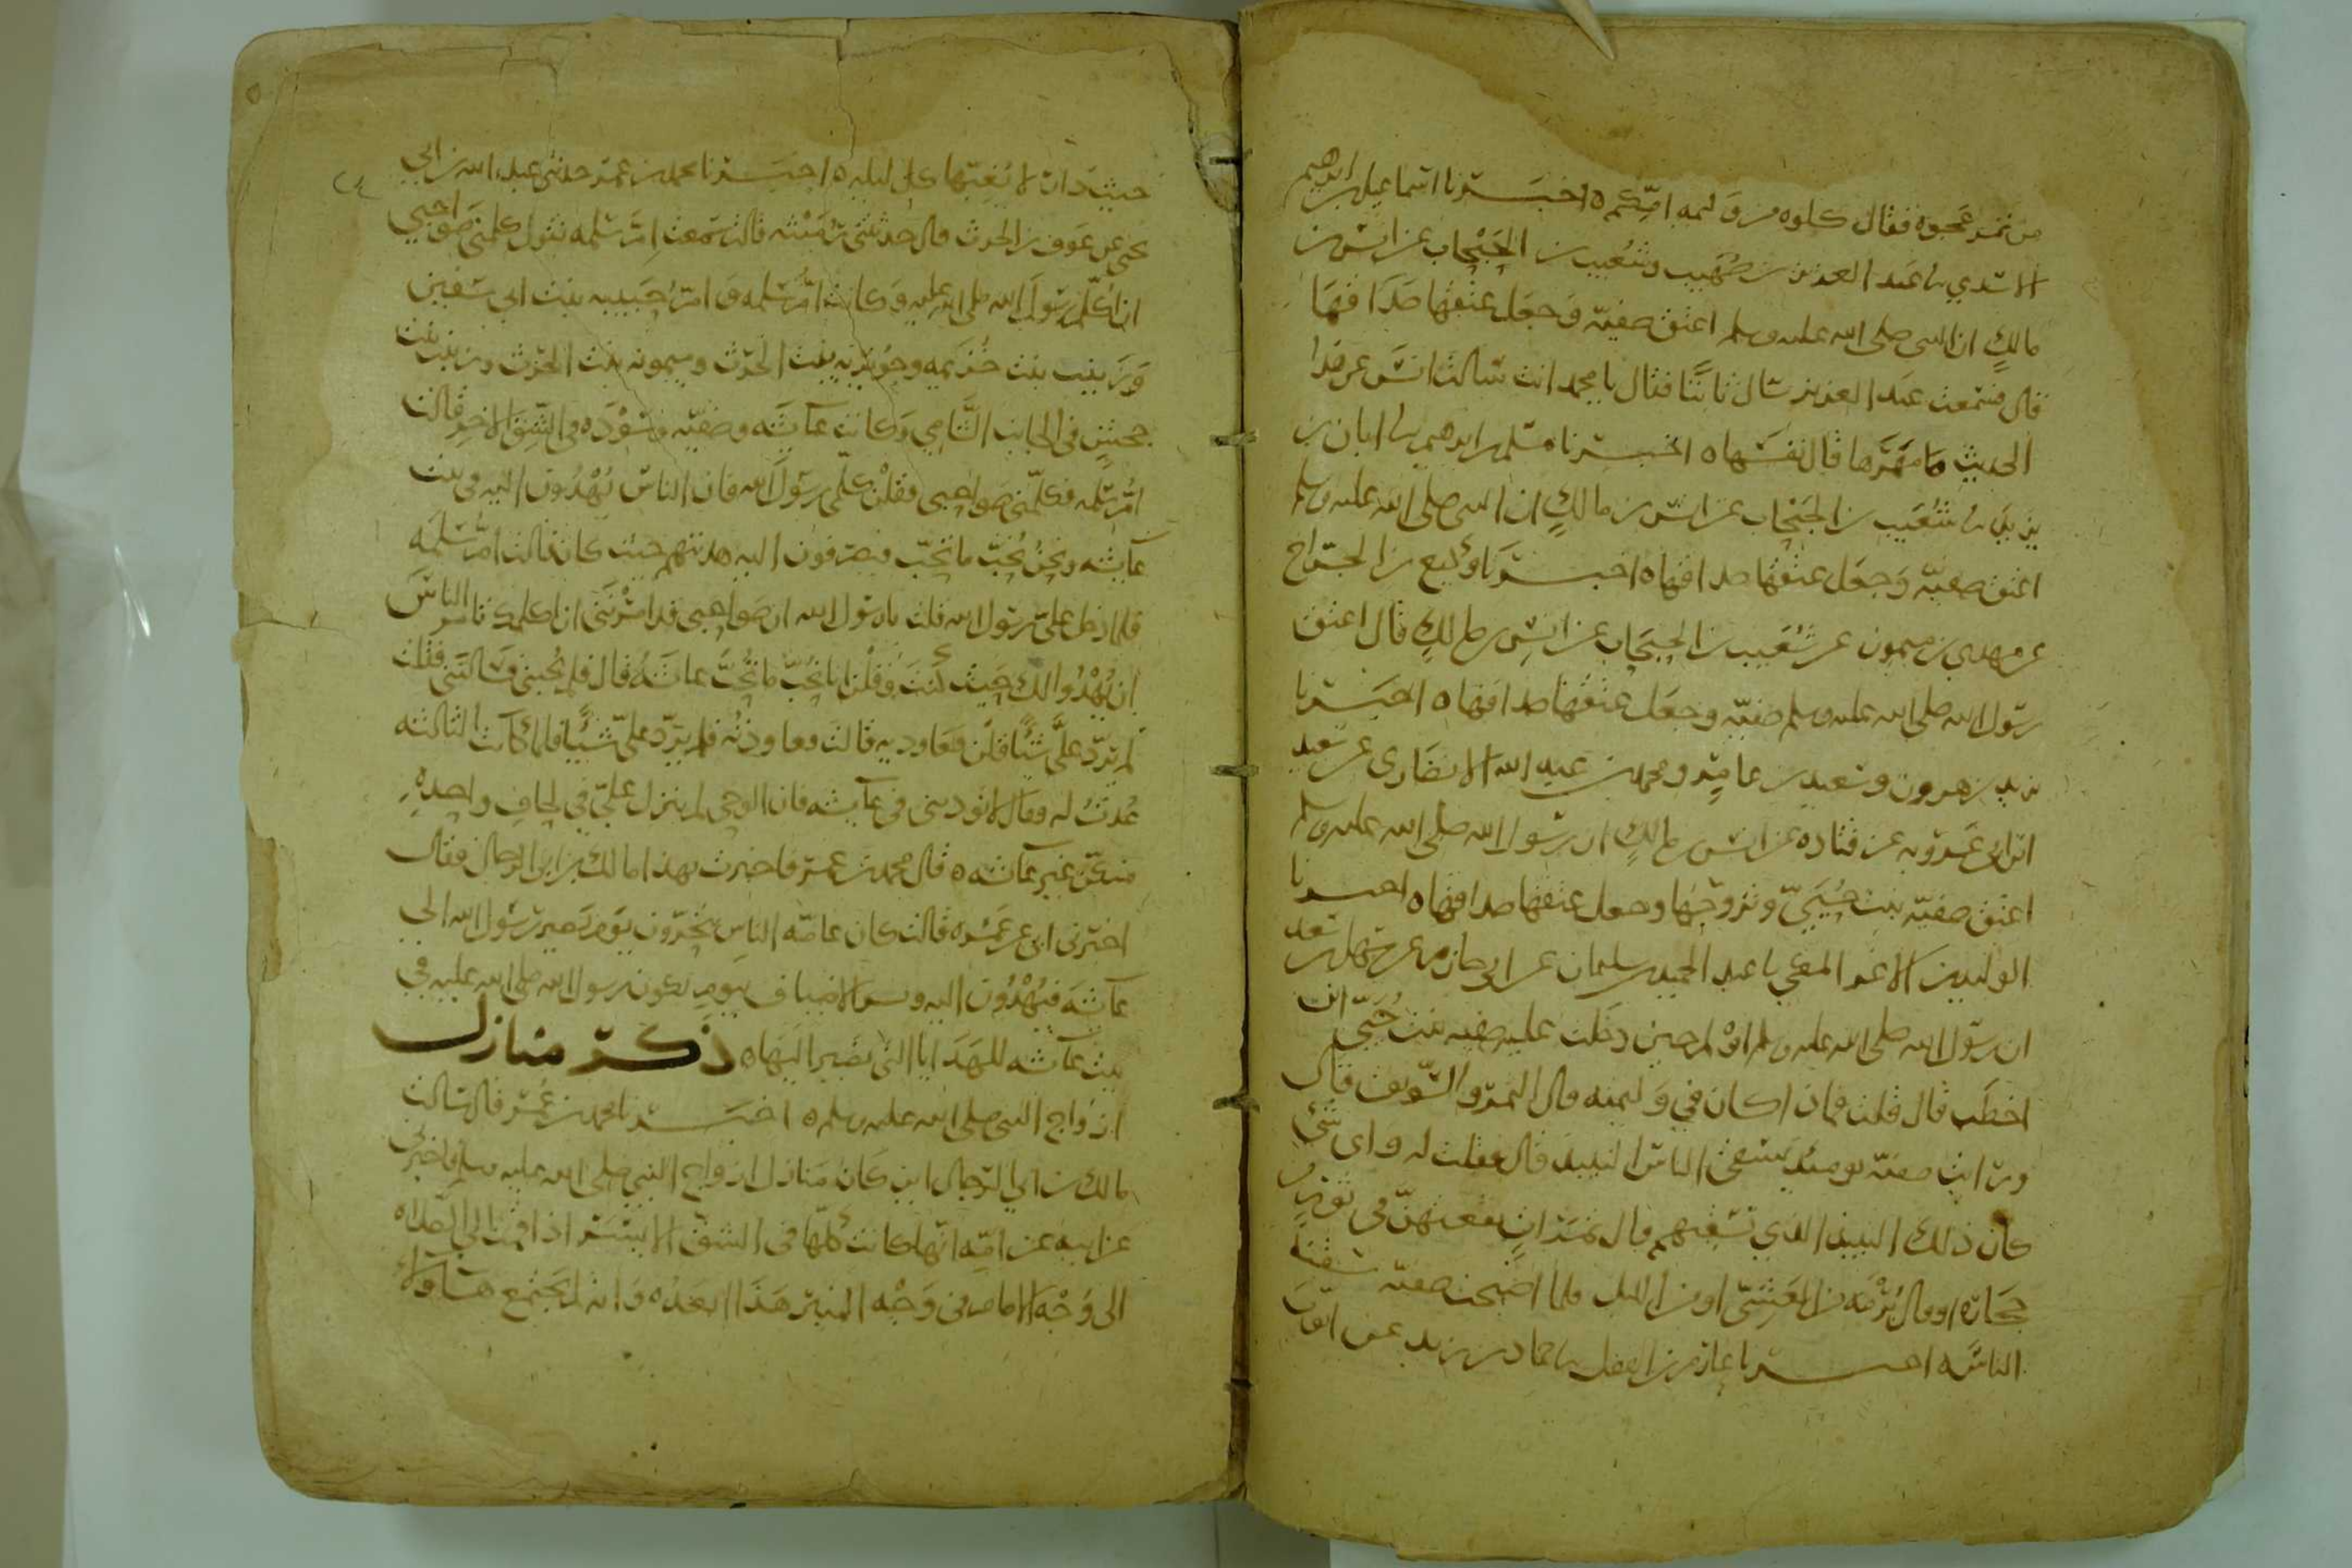 من تمر عجوه فقال كلوه من وليمه امّكم ه اخبرنا اسماعيل بن ابرهيم
الاسدي نا عبد العزيز بن صُهَيب وشعيب بن الحَبْحاب عن انس بن
مالكٍ ان النبى صلى الله عليه وسلم اعتق صفيّه وَجعَل عتقها صَدَاقهَا
قال فسَمعت عبد العزيز سَال ثابتًا فقال يا محمد انت سَالت انسَ عن هذا
الحديث مَا مَهَرَها قال نفسَها ه اخبرنا مسلم بن ابرهيم نا ابان بن
يزيد نا شُعَيب بن الحَبْحاب عن انس بن مالكٍ ان النبى صلى الله عليه وسلم
اعتق صفيّه وَجعَل عتقها صداقها ه اخبرنا وكيع بن الجرّاح
عن مهدي بن ميمون عن شعَيب بن الحبحَاب عن انسٍ بن مالكٍ قال اعتق
رسول الله صلى الله عليه وسلم صفيّه وجعَل عتقها صداقها ه اخبرنا
يزيد بن هرون وسَعيد بن عامِر ومحمد بن عبد الله الانصَارى عن سعيد
ابن ابى عَروبه عن قتاده عن انس بن مالكٍ ان رسول الله صلى الله عليه وسلم
اعتق صفيّه بنت حُيَىّ وتزوجَها وجعل عتقها صداقها ه اخبرنا
الوليد بن الاغر المكي نا عبد الحميد بن سليمان عن ابى حازم عن سهل بن سعد
ان رسول الله صلى الله عليه وسلم اوْلم حين دخَلت عليه صفيه بنت حُيَىّ ابن
اخطَب قال قلت فماذا كان في وَليمته قال التمر والسّويق قال
ورايت صفيّه يومئذٍ تسقى الناسَ النبيذ قال فقلت له واى شَيْ
كان ذلك النبيذ الذي تسقيهم قال تمَراتٍ نقعتهنّ في تَورٍ من
حجَاره او قال بُرْمَه من العَشىّ او من الليل فلما اصْبحت صفيّه سقته
الناسَ ه اخبرنا عارم بن الفضل نا حماد بن زيد عن ايّوبَ
٢٤
حبيبَ ان لا يُغِبّها كل ليله ه اخبَرنا محمد بن عمر حدثنى عبد الله بن ابى
يحى عن عَوف بن الحرث قال حدثتنى رُمَيْثه قالت سَمعت امّ سَلمه تقول كلمنى صَوَاحبي
ان اكلّم رسَولَ الله صلى الله عليه وَكانت امّ سَلمه و امّ حَبيبه بنت ابى سَفين
وَزَينب بنت خُزَيمه وجُوَيريه بنت الحرث وميمونه بنت الحرث وزينب بنت
جحشٍ فى الجانب الشَّامي وَكانت عَائشَه وصَفيّه وَسَوْدَه فى الشِّقّ الاخِر قالت
امّ سَلمه فكلّمنى صَواحبى فقلْن كلّمى رسَولَ الله فان الناسَ يُهْدُون اليه فى بيت
عَائشه ونحنُ نُحبّ ما تُحبّ فيَصرفون اليه هديتهم حيث كان قالت امّ سَلمَه
فلما دخل علىّ رسَول الله قلت يا رسَول الله ان صَواحبى قد امَرْننى ان اكلمك تامر الناسَ
ان يُهْدُوا لك حَيث كُنتَ وَقلْن انا نحُبّ مَا تُحبّ عائشَهُ قال فلم يُجبنى فسَالننى فقلت
لم يردّ علىَّ شيئًا قلْن فعَاوديه قالت فعَاودتُه فلم يرَدّ علىّ شيئًا فلما كانت الثالثه
عُدتُ له فقال لا تؤذينى فى عَائشه فان الوحي لم ينزل عَلىّ في لحافِ واحدهٍ
منكنّ غير عَائشه ه قال محمد بن عمر فاخبرت بهذا مالك بن ابى الرجال فقال
اخبرنى ابى عن عَمْره قالت كان عامّه الناسِ يتحَرّون يَوم يَصير رسَول الله الى
عَائشَه فيُهْدُون اليه ويسر الاضيَاف بيومِ يكون رسول الله صلى الله عليه في
بيت عَائشه للهَدَايا التى تصَير اليهَا ه ذكر منازل
ازوَاج النبى صلى الله عليه وسلم ه اخبَرنا محمد بن عُمر قال سَالت
مالك بن ابى الرّجال اين كانَ مَنازل ازواج النبي صَلى الله عليه وسلم فاخبرنى
عن ابيه عن امّه انّها كانت كلّها فى الشقّ الايسَر اذا قمْت الى الصّلاه
الى وَجْه الامام في وَجْه المنبر هَذَا ابعَدُه وَانه لم يجَتمع هَآؤلآءِ